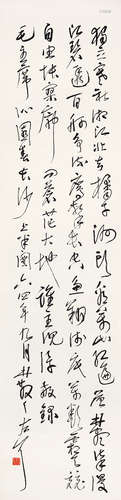 独立寒秋湘江北去橘子洲头看万山红遍层林尽染漫
江碧透百舸争流鹰击长空鱼翔浅底万类霜天竞
自由怅寥廓问苍茫大地谁主沉浮敬录
毛主席沁園春长沙上半阕六四年九月林散之